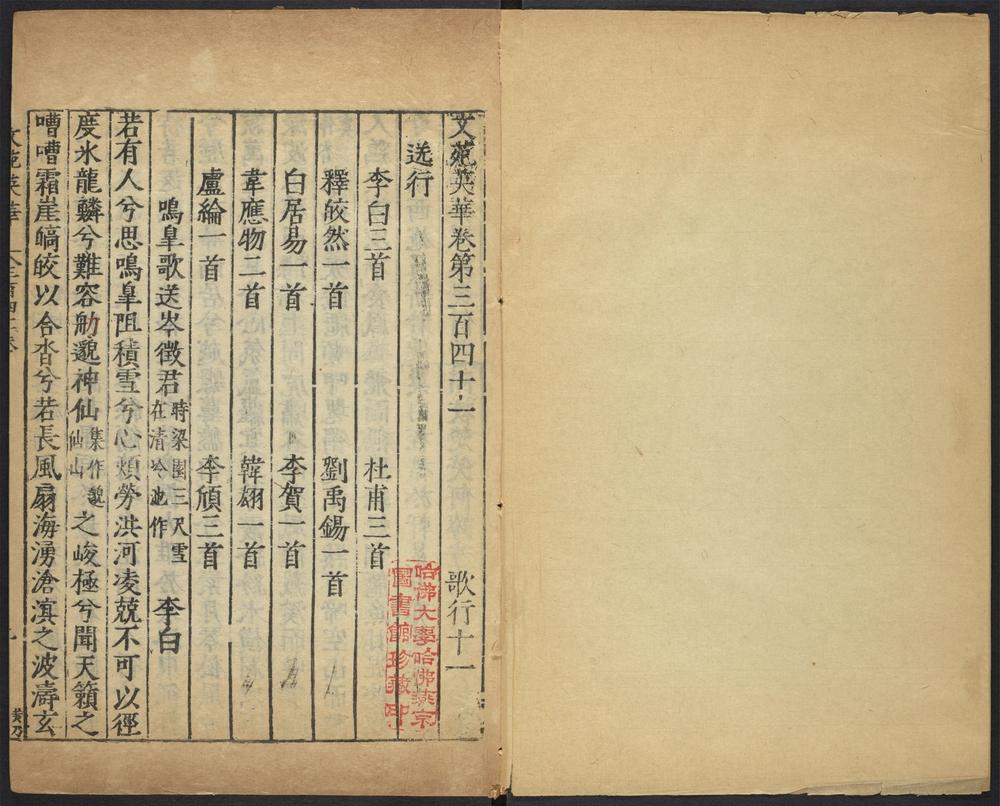 文苑英華卷第三百四十二 歌行十二
送行
李白三首 杜甫三首
釋皎然一首 劉禹錫一首
白居易一首 李賀一首
韋應物二首 韓翃一首
盧綸一首 李頎三首
鳴臯歌送岑徵君 時梁園三尺雪在清泠池作 李白
若有人兮思鳴臯阻積雪兮心煩勞洪河凌兢不可以徑
度氷龍鱗兮難容舠邈神仙 集作邈仙山 之峻極兮聞天籟之
嘈嘈霜崖縞皎以合沓兮若長風扇海湧滄溟之波濤玄
哈佛大學哈佛燕京
圖書館珍藏印
文苑英華